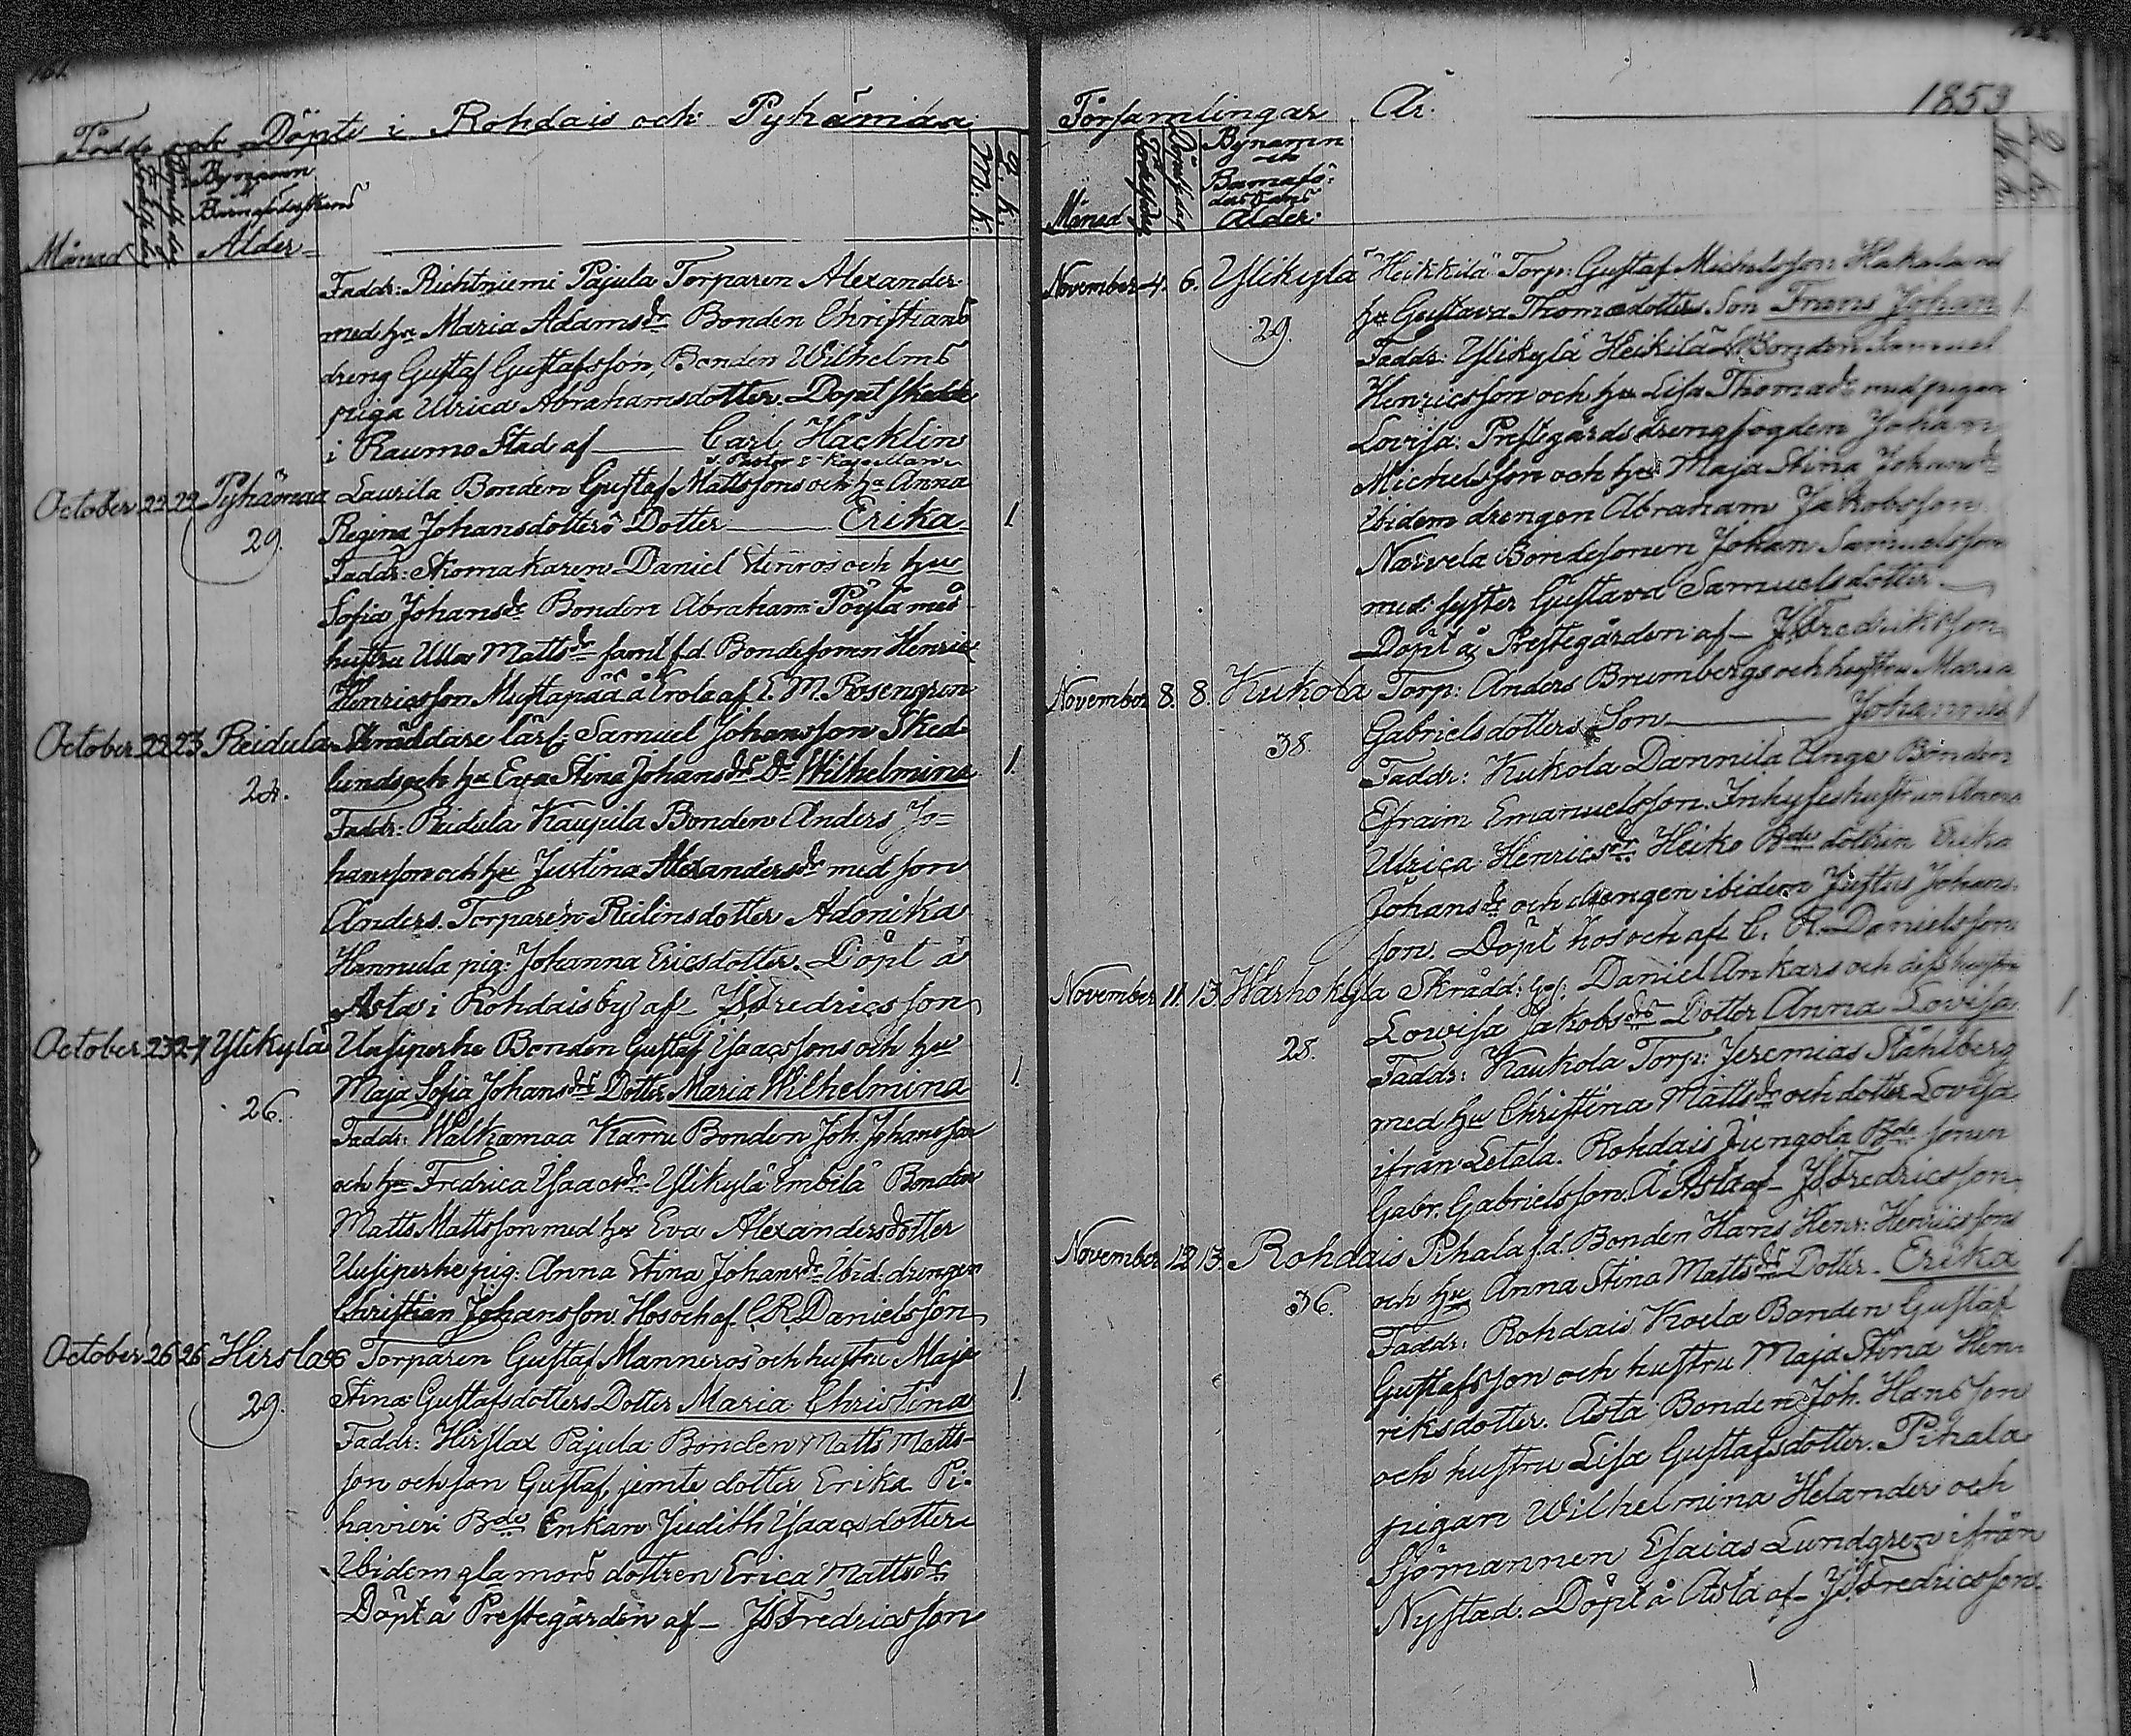 Födde och Döpte i Rohdais och Pyhämaa
Månad
Födelsedag
Döpelsedag
Bynamn
och
Barnaföderskans
Ålder
M. k.
Q. k.
Faddr: Richtniemi Pajula Torparen Alexander
med hu Maria Adamsdr Bonden Christians
dreng Gustaf Gustafsson, Bonden Wilhelms
piga Ulrica Abrahamsdotter. Dopet skedde
i Raumo Stad af — Carl Hacklin
v. Pastor & Kapellan
October 22 22 Pyhämaa Laurila Bonden Gustaf Mattssons och hu Anna
29. Regina Johansdotters Dotter — Erika 1
Faddr: Skomakaren Daniel Stenros och hu
Sofia Johansdr Bonden Abraham Pöylä med
hustru Ulla Mattsdr samt f.d. Bondesonen Henric
Henricsson Mustapää å Erola af E. M. Rosengren
October 22 23 Reidula Skräddare lärl: Samuel Johansson Sked-
24. lunds och hu Eva Stina Johansdrs Dr Wilhelmina 1.
Faddr: Reidula Kaupila Bonden Anders Jo=
hansson och hu Justina Alexandersdr med son
Anders. Torparen Relinsdotter Adonika
Hannula pig: Johanna Ericsdotter. Döpt å
Asta i Rohdais by af JFredricsson
October 23 24 Ylikylä Uusiperhe Bonden Gustaf Ysaacssons och hu
26. Maja Sofia Johansdrs Dotter Maria Wilhelmina 1.
Faddr: Walkamaa Karru Bonden Joh. Johansson
och hu Fredrica Ysaacsdr. Ylikylä Imbilä Bonden
Matts Mattsson med hu Eva Alexandersdotter
Uusiperhe pig: Anna Stina Johansdr Ibid: drengen
Christian Johansson. Hos och af C.R. Danielsson
October 26 26 Hirslax Torparen Gustaf Manneros och hustru Maja
29. Stina Gustafsdotters Dotter Maria Christina 1.
Faddr: Hirslax Pajula Bonden Matts Matts-
son och son Gustaf, jemte dotter Erika Pi-
havieri Bde Enkan Judith Ysaacsdotter
Ibidem gla mors dottren Erica Mattsdr
Döpt å Prestegården af — JFredricsson
Församlingar År. 1853
Månad
Födelsedag
Döpelsedag
Bynamn
och
Barnafö-
derskans
Ålder:
M. k.
Q. k.
November 4. 6. Ylikylä Heikkilä Torp: Gustaf Michelsson Hakala och
29. hu Gustava Thomædotters Son Frans Johan 1
Faddr: Ylikylä Heikilä Bonden Samuel
Henricsson och hu Lisa Thomadr med pigan
Lovisa: Prestegårds drengfogden Johan
Michelsson och hu Maja Stina Johansdr
Ibidem drengen Abraham Jakobsson
Narvela Bondesonen Johan Samuelsson
med syster Gustava Samuelsdotter
Döpt å Prestegården af — JFredriksson
November 8. 8. Kukola Torp: Anders Brumbergs och hustru Maria
38. Gabrielsdotters Son — Johannes 1
Faddr: Kukola Dannila Unge Bonden
Efraim Emanuelsson. Inhyseshustrun Anna
Ulrica Henricsdr Heiko Bde dottren Erika
Johansdr och drengen ibidem Justus Johans-
son. Döpt hos och af C. R. Danielsson
November 11. 13. Warhokylä Skrädd: Ges: Daniel Ankars och dess hustru
28. Lowisa Jakobsdrs Dotter Anna Lovisa 1
Faddr: Kaukola Torp: Jeremias Ståhlberg
med hu Christina Mattsdr och dotter Lovisa
ifrån Letala. Rohdais Jungola Bde sonen
Gabr. Gabrielsson. Å Asta af — JFredricsson
November 12 13. Rohdais Pihala f.d. Bonden Hans Henr: Henricssons
36. och hu Anna Stina Mattsdrs Dotter — Erika 1.
Faddr: Rohdais Koela Bonden Gustaf
Gustafsson och hustru Maja Stina Hen-
riksdotter. Asta Bonden Joh. Hansson
och hustru Lisa Gustafsdotter. Pihala
pigan Wilhelmina Helander och
Sjömannen Esaias Lundgren ifrån
Nystad. Döpt å Asta af — JFredricsson